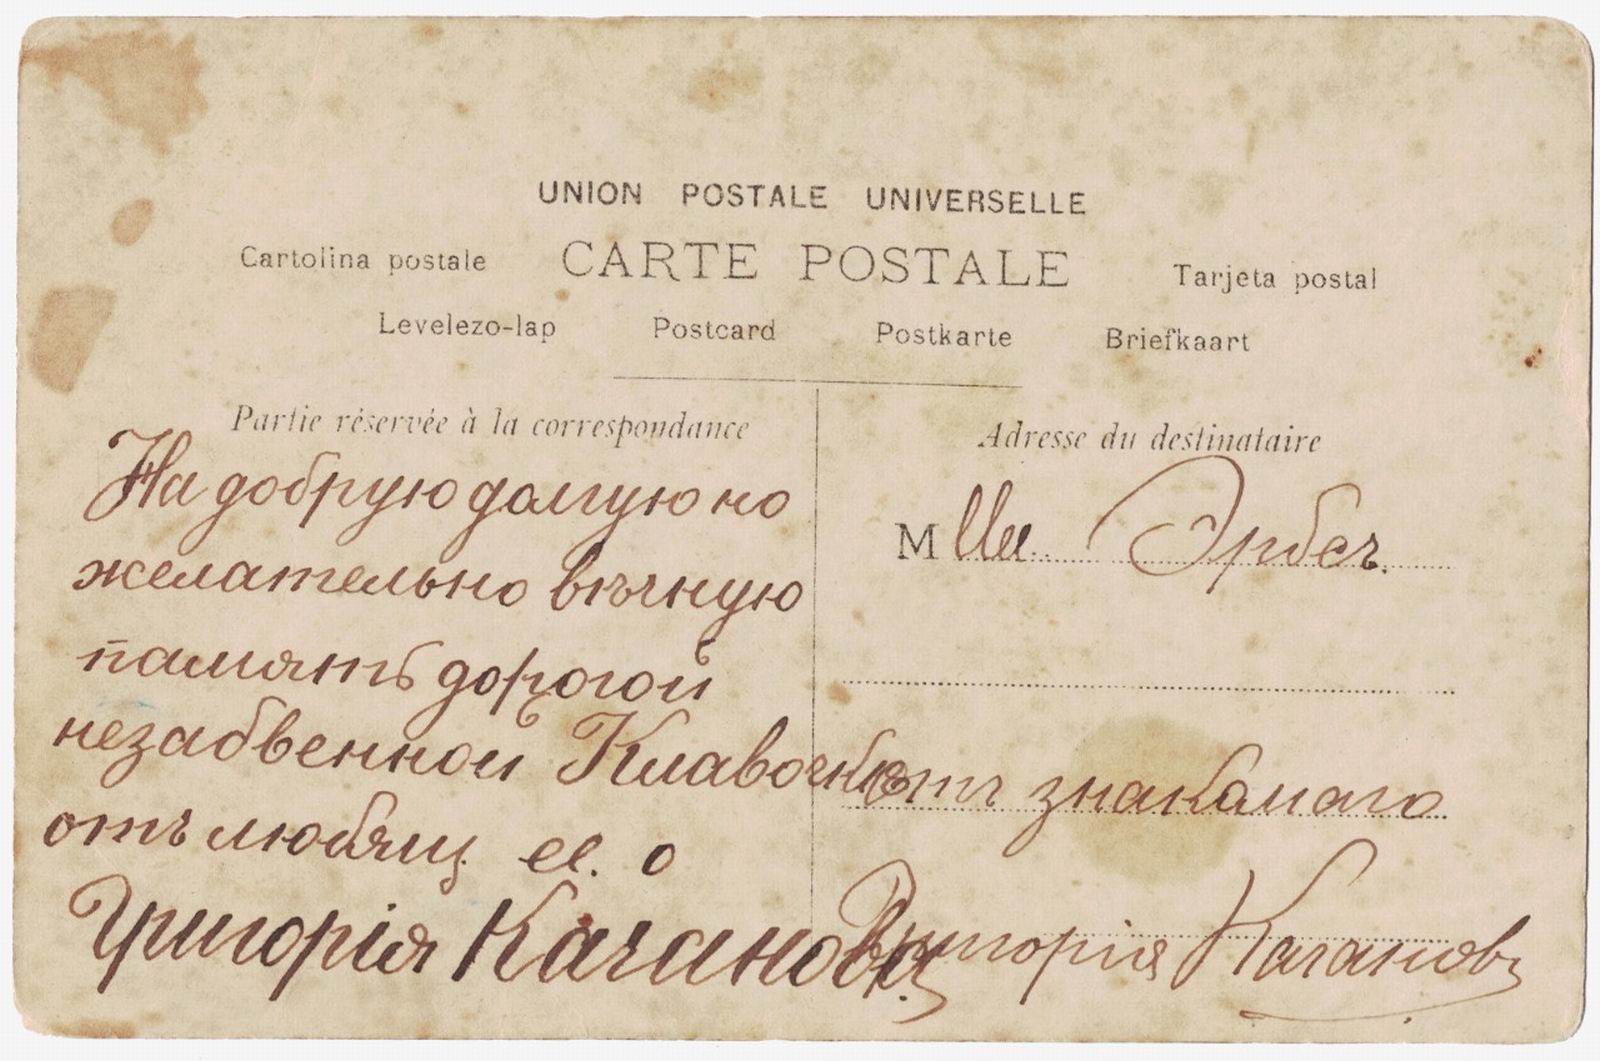 UNION POSTALE UNIVERSELLE
Cartolina postale CARTE POSTALE Tarjeta postal
Levelezo-lap Postcard Postkarte Briefkaart
Partie réservée à la correspondance
На добрую долгую но
желательно вѣчную
память дорогой
незабвенной Клавочкѣ
отъ любящ. ее. о
Григорія Качанова
Adresse du destinataire
Mlle Эрбев.
отъ знакамаго
Григорія Качановъ